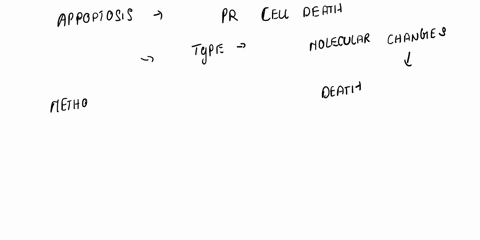 APPOPTOSIS → PR CELL DEATH
→ TYPE → MOLECULAR CHANGES
↓
DEATH
METHO